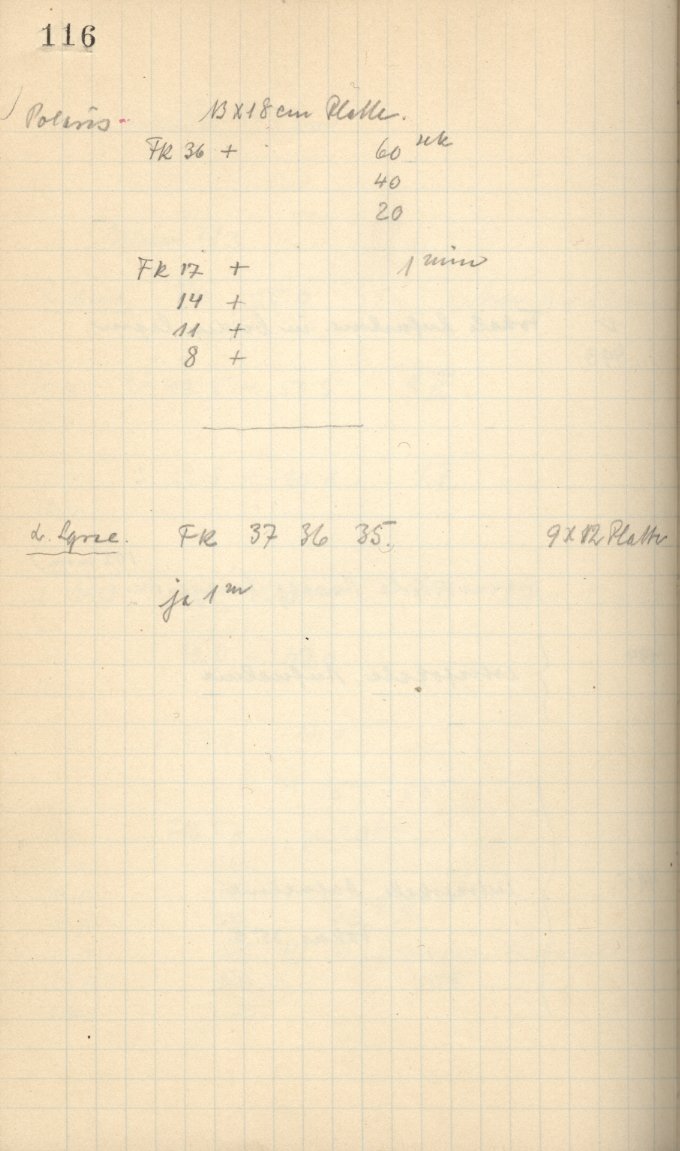 116
Polaris 13 x 18 cm Platte.
FR 36 + 60 sek
40
20
FR 17 + 1 min
14 +
11 +
8 +
α. Lyrae. FR 37 36 35. 9 x 12 Platte
je 1 m